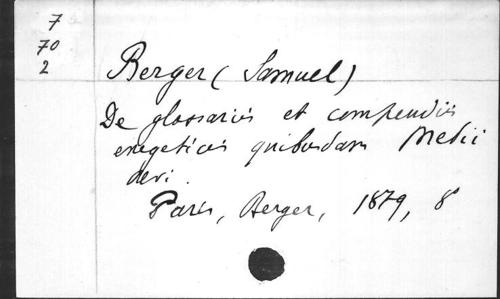 7
70
2
Berger (Samuel)
De glossariis et compendiis
exegeticis quibusdam Medii
aevi.
Paris, Berger, 1879, 8°